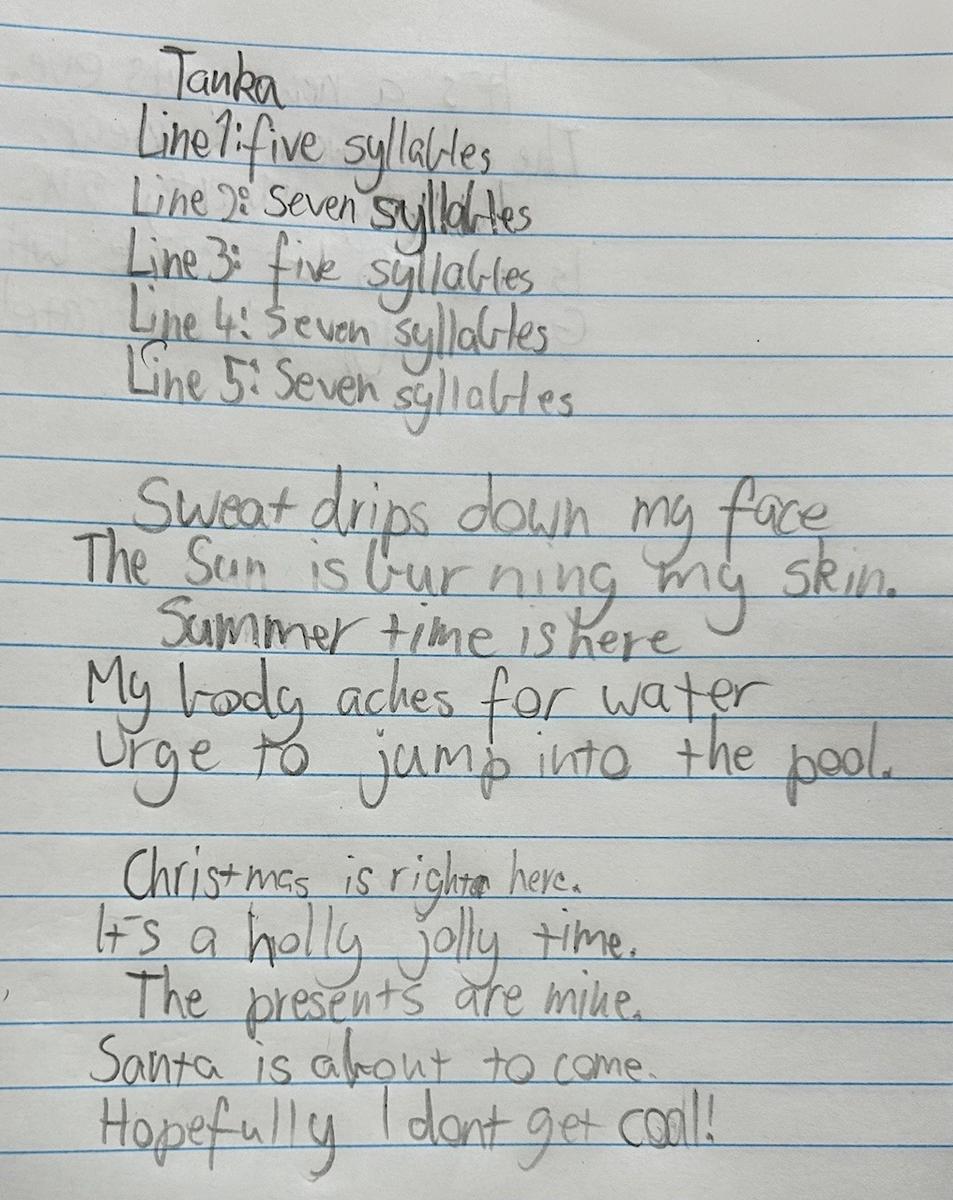 Tanka
Line 1: five syllables
Line 2: Seven syllables
Line 3: five syllables
Line 4: Seven syllables
Line 5: Seven syllables
Sweat drips down my face
The Sun is bur ning my skin.
Summer time is here
My body aches for water
Urge to jump into the pool.
Christmas is right here.
It's a holly jolly time.
The presents are mine.
Santa is about to come.
Hopefully I dont get coal!